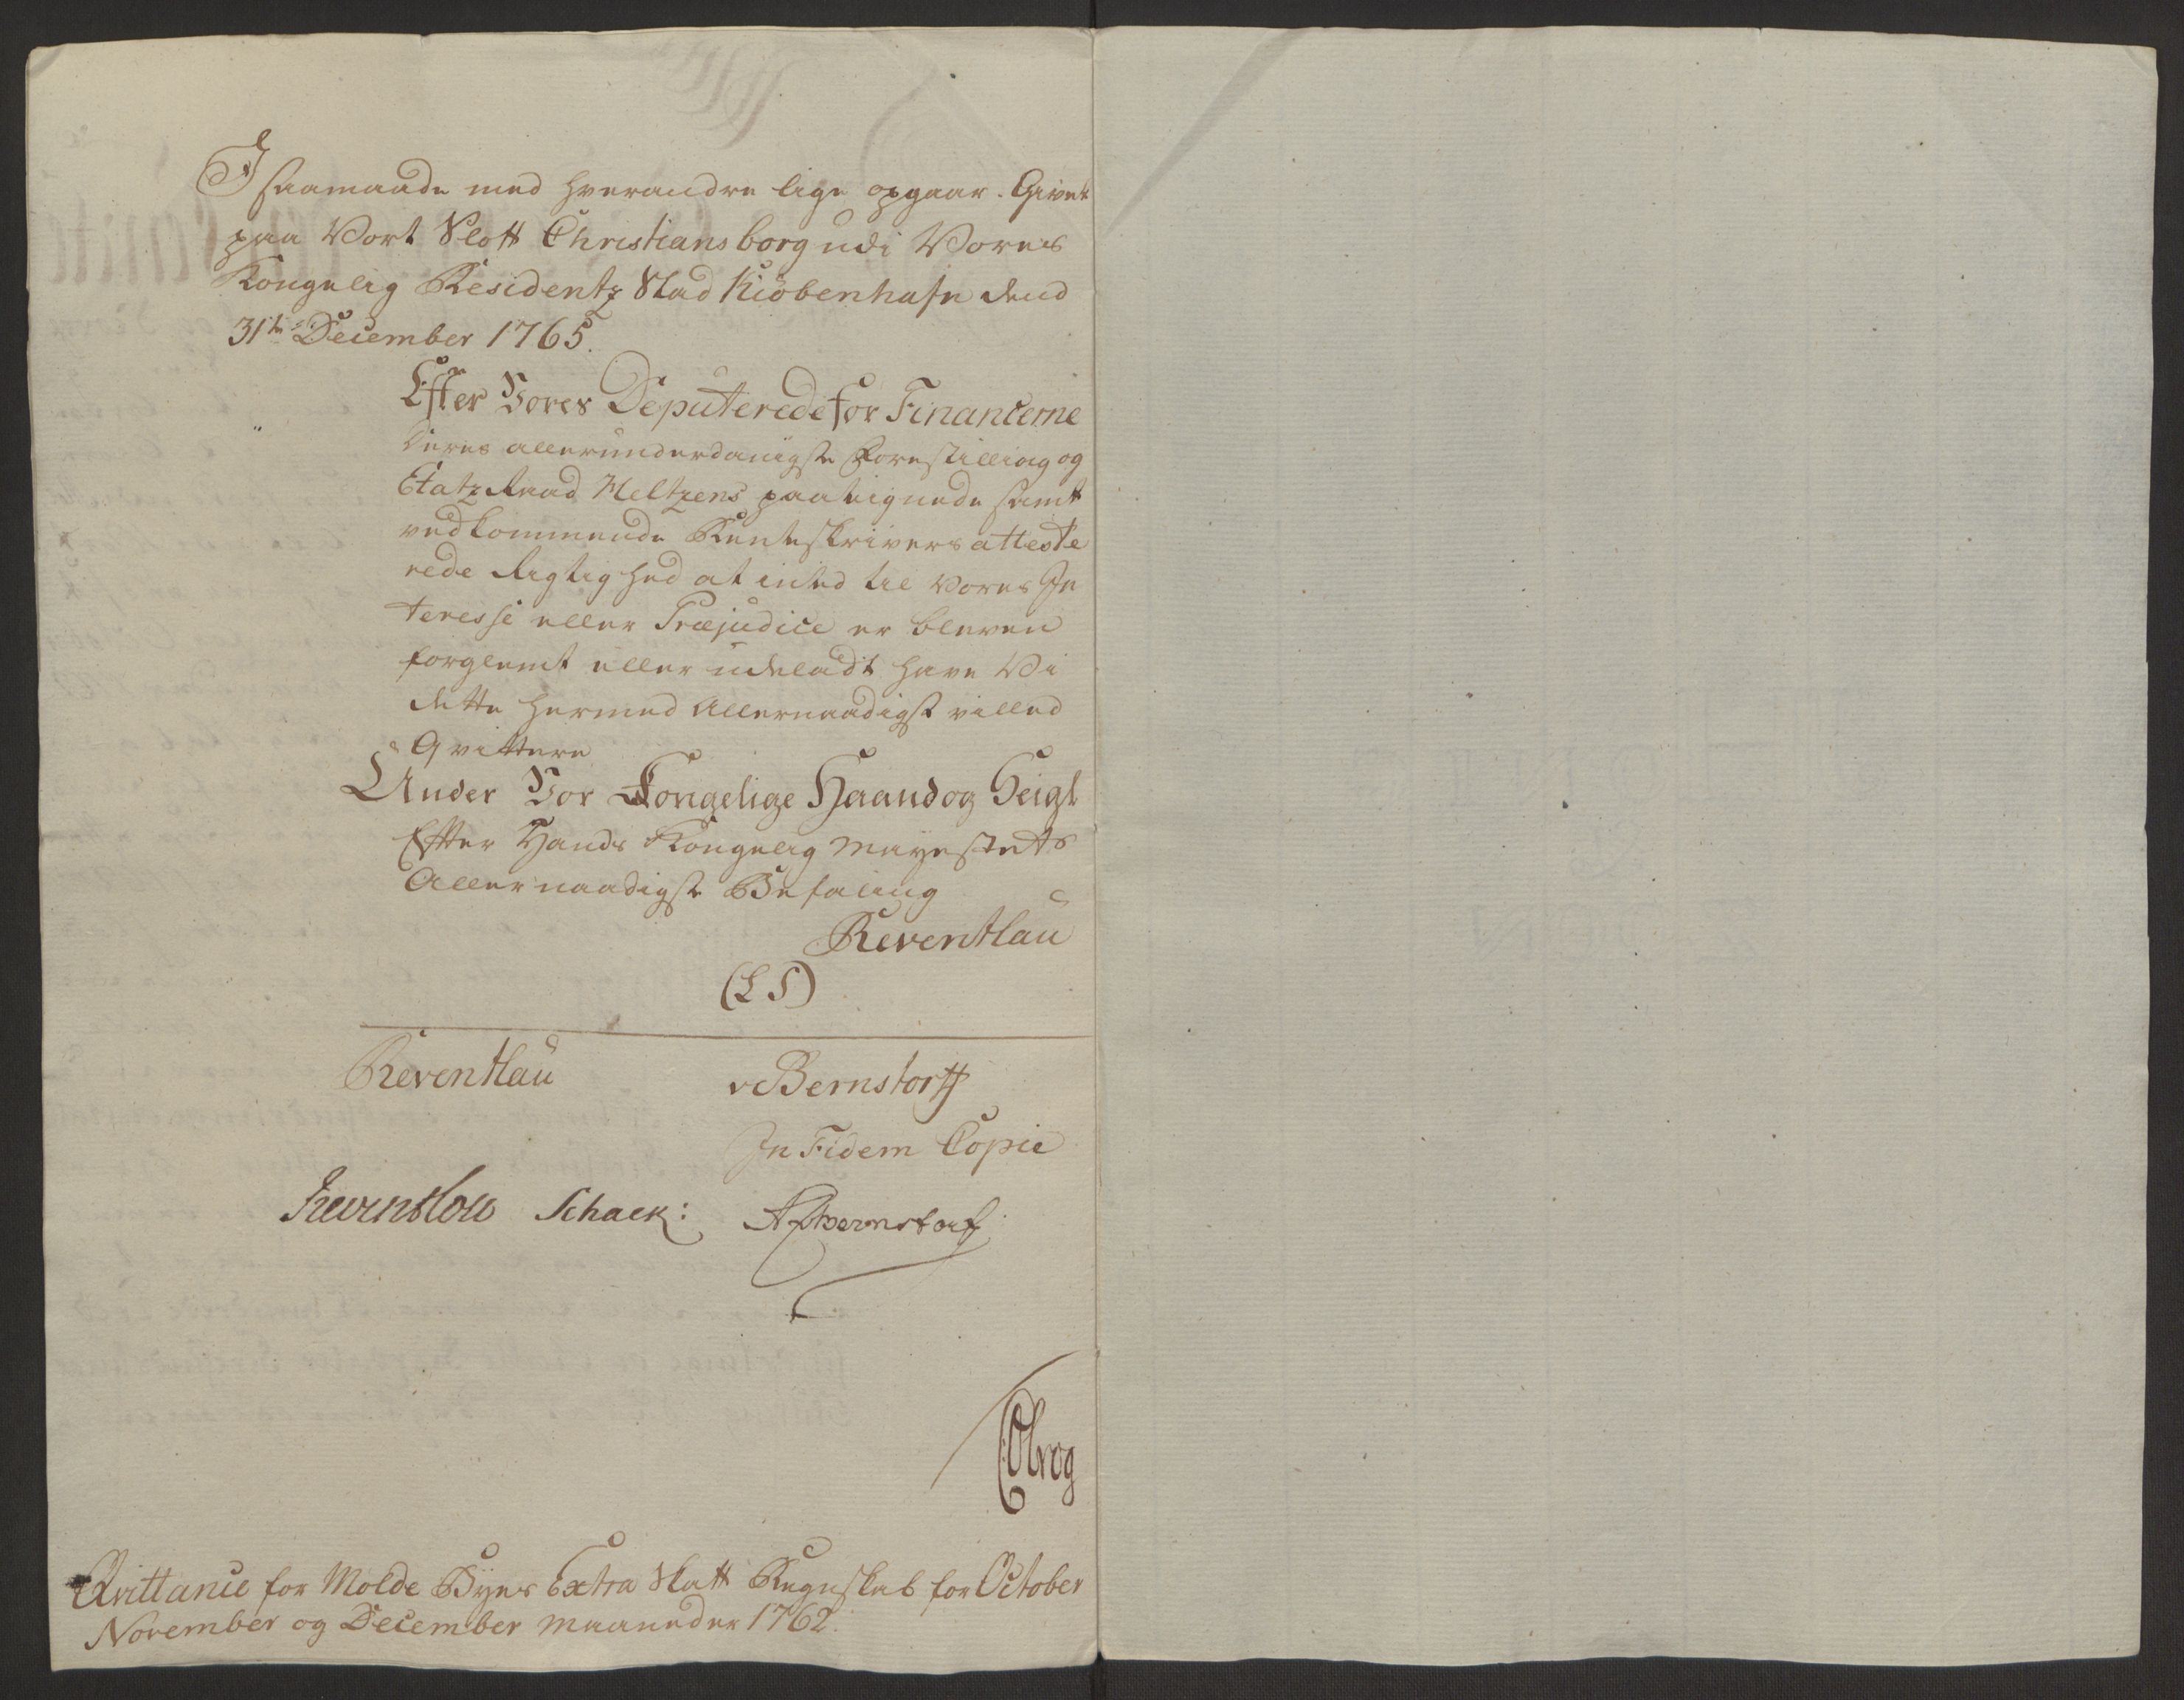 I saamaade med hverandre lige opgaar. Givet
paa Vort Slott Christiansborg udi Vores
Kongelig Residentz Stad Kiöbenhafn dend
31te December 1765.
Efter Vores Deputerede for Financerne
deres allerunderdanigste Forestilling og
Etatz Raad Heltzens paateignede samt
vedkommende Renteskrivers atteste
rede Rigtighed at inted til Vores In
teresse eller Præjudice er bleven
forglemt eller udeladt have Vi
dette hermed Allernaadigst villed
Qvittere
Under Vor Kongelige Haand og Seigl
Efter Hands Kongelig Mayestets
Allernaadigste Befaling
Reventlau
(L S)
Reventlau vBernstorff
In Fidem Copie
Reventlow Schack: APBernstorff
Qvittance for Molde Byes Extra Skatt Regnskab for October
November og December Maaneder 1762.